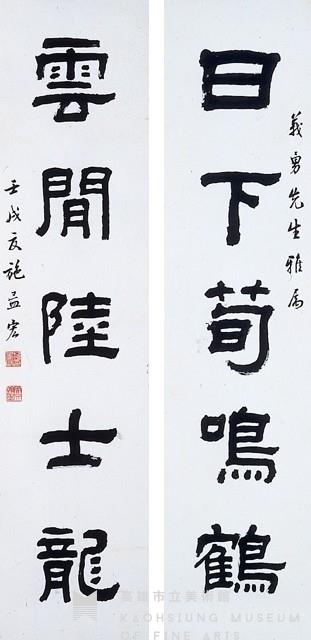 義勇先生雅屬
日下荀鳴鶴
雲間陸士龍
壬戌夏施孟宏
高雄市立美術館
KAOHSIUNG MUSEUM
OF FINE ARTS